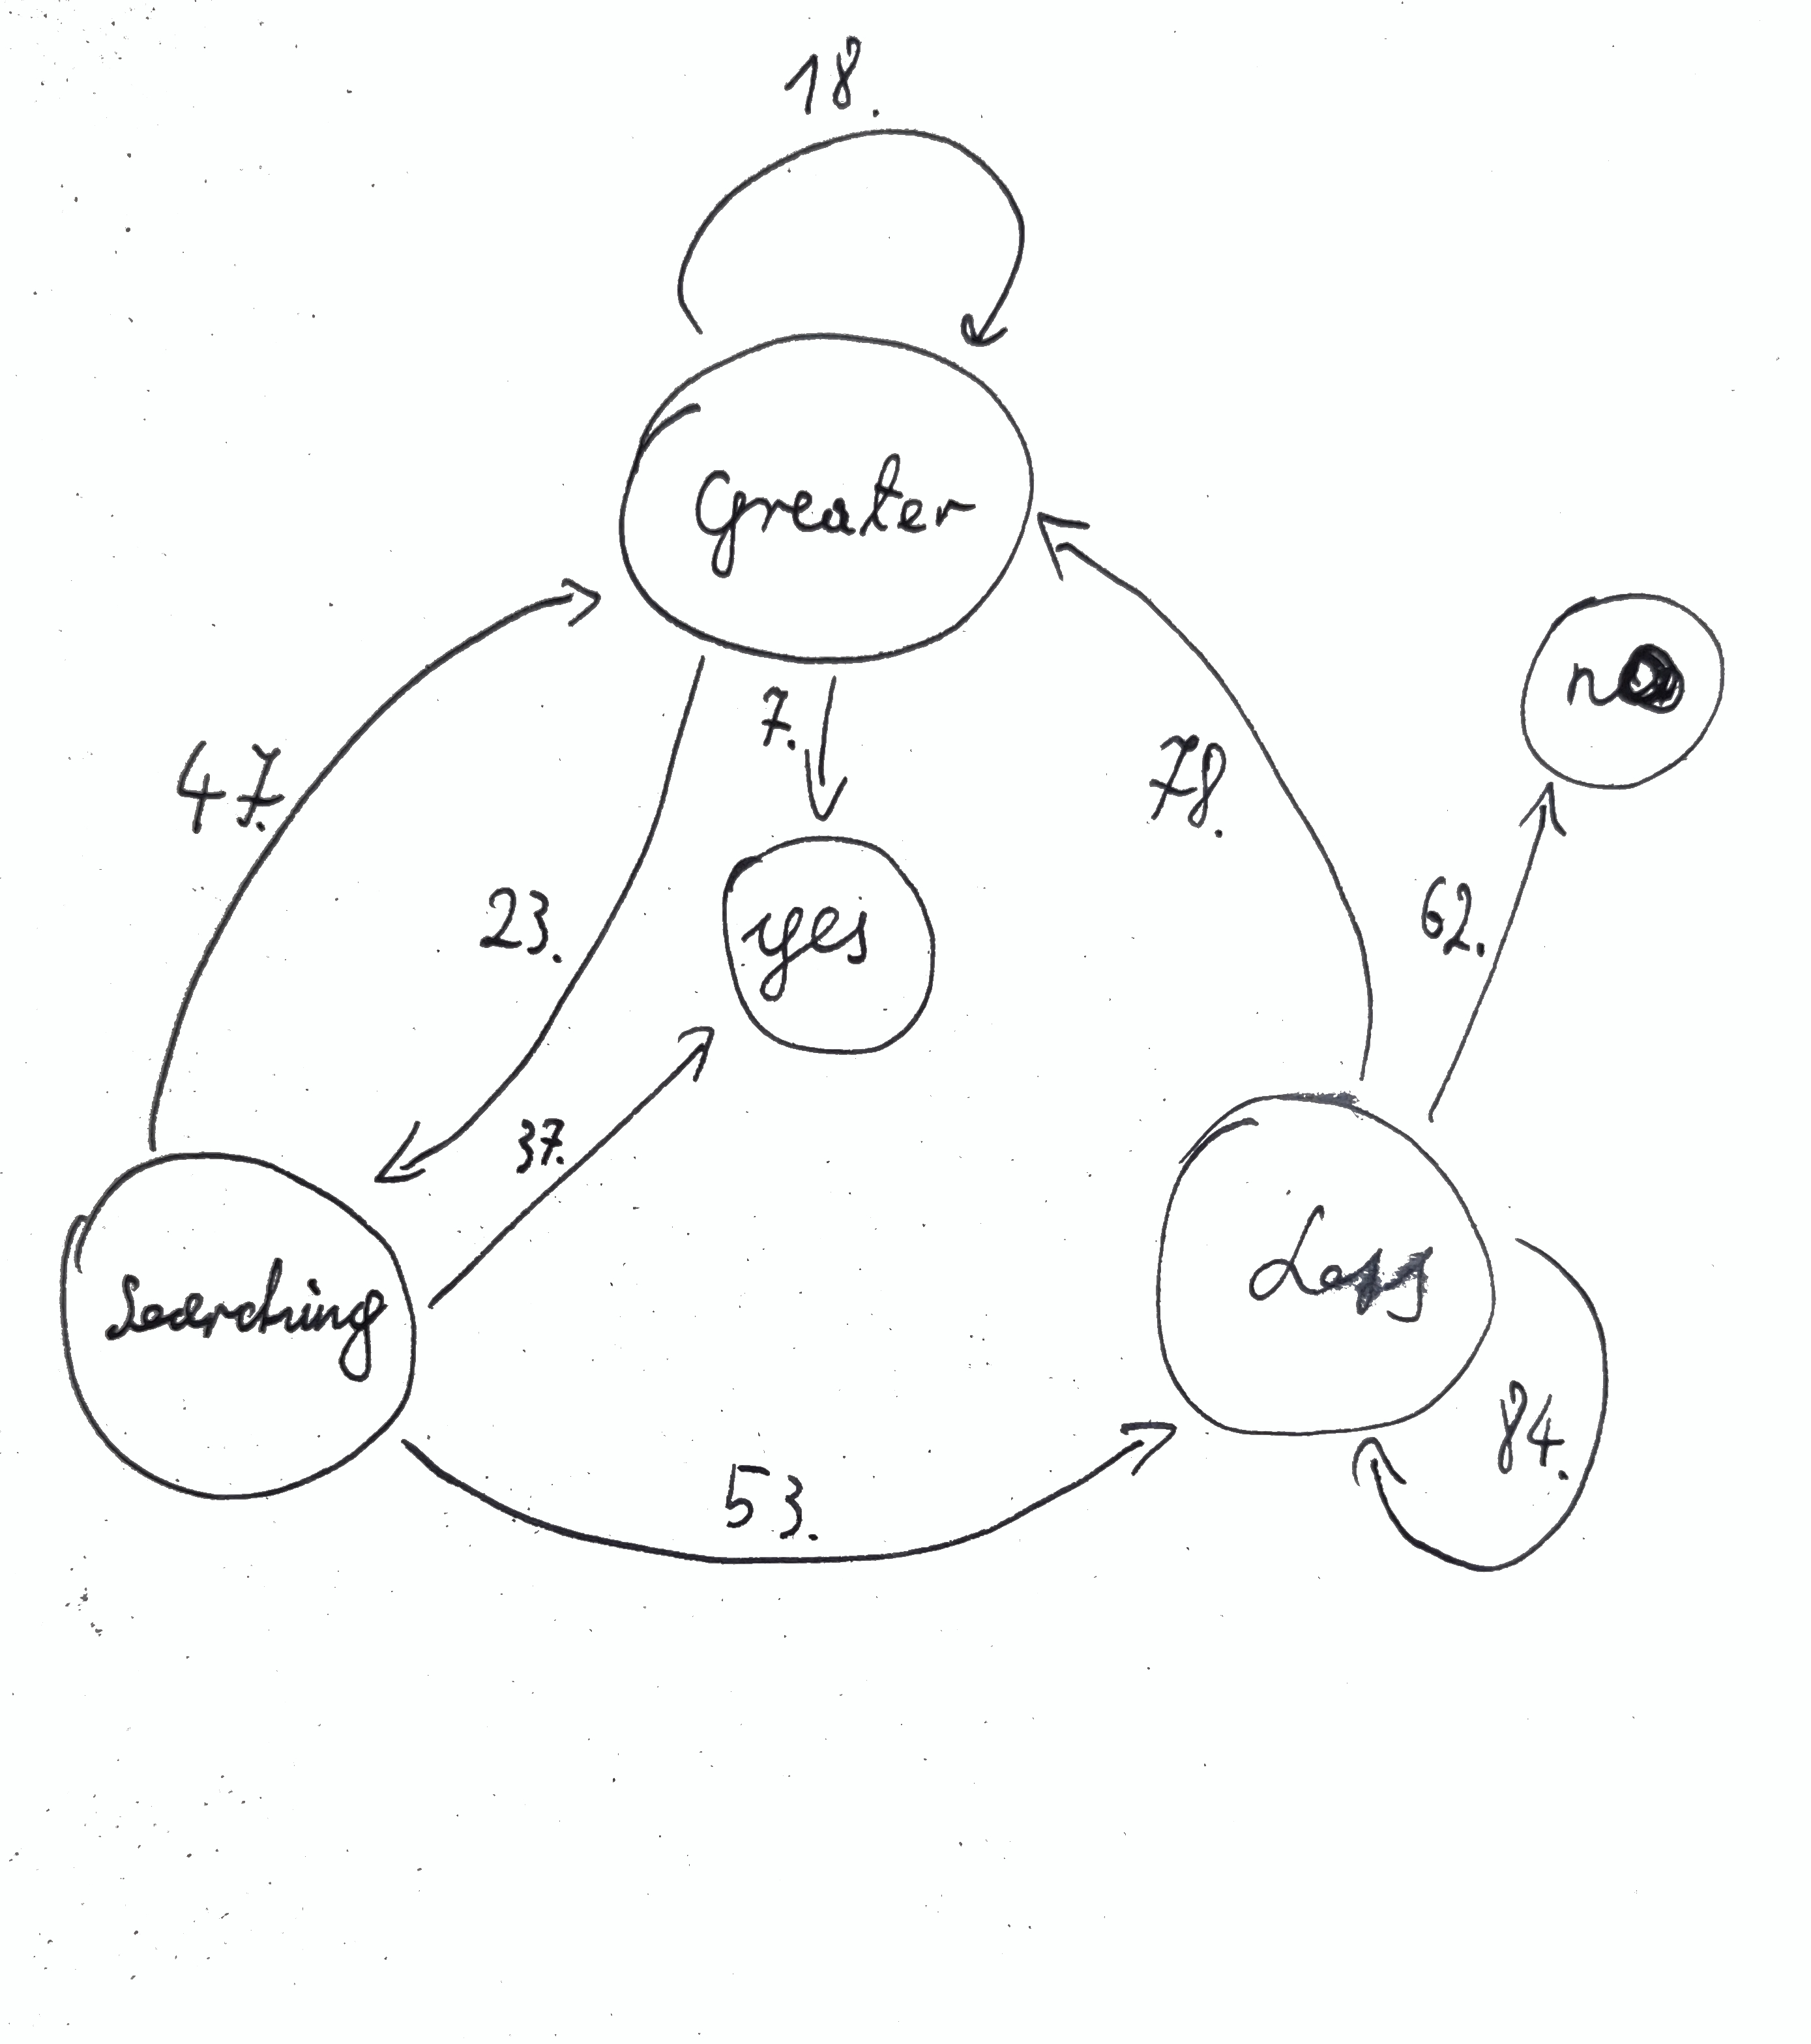 18.
Greater
47.
7.
78.
no
23.
yes
62.
37.
Searching
Less
84.
53.